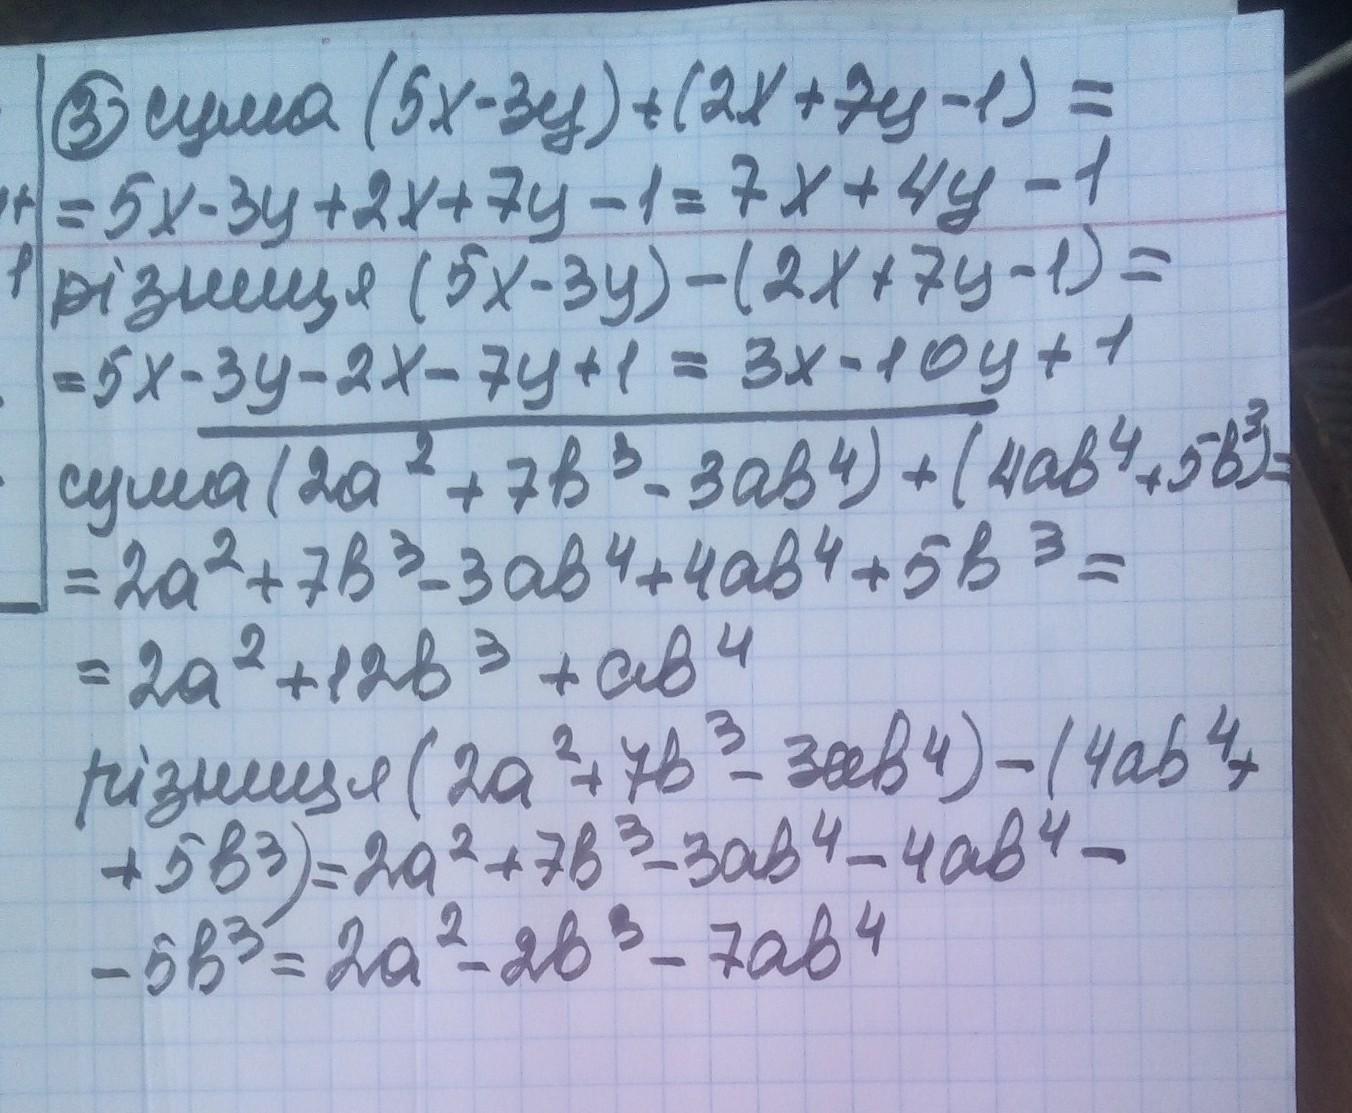 ③ сума (5x-3y)+(2x+7y-1)=
=5x-3y+2x+7y-1=7x+4y-1
різниця (5x-3y)-(2x+7y-1)=
=5x-3y-2x-7y+1=3x-10y+1
сума(2a²+7b³-3ab⁴)+(4ab⁴+5b³)=
=2a²+7b³-3ab⁴+4ab⁴+5b³=
=2a²+12b³+ab⁴
різниця(2a²+7b³-3ab⁴)-(4ab⁴+
+5b³)=2a²+7b³-3ab⁴-4ab⁴-
-5b³=2a²-2b³-7ab⁴